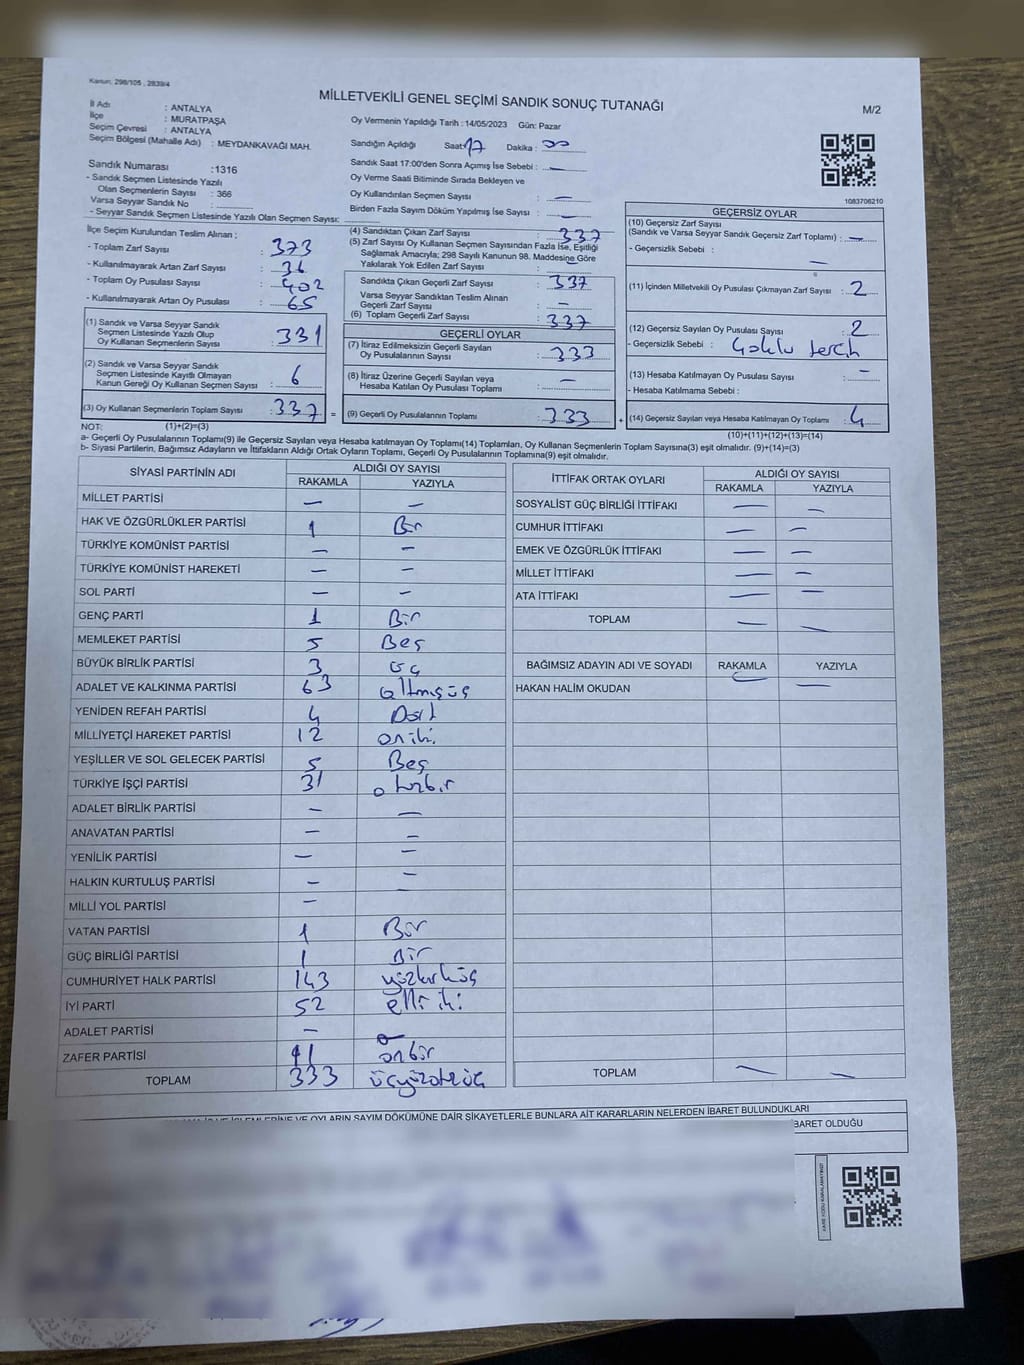 Kanun: 298/105 , 2839/4
MİLLETVEKİLİ GENEL SEÇİMİ SANDIK SONUÇ TUTANAĞI
M/2
İl Adı : ANTALYA
İlçe : MURATPAŞA
Seçim Çevresi : ANTALYA
Seçim Bölgesi (Mahalle Adı) : MEYDANKAVAĞI MAH.
Sandık Numarası : 1316
- Sandık Seçmen Listesinde Yazılı
Olan Seçmenlerin Sayısı : 366
Varsa Seyyar Sandık No :
- Seyyar Sandık Seçmen Listesinde Yazılı Olan Seçmen Sayısı:
Oy Vermenin Yapıldığı Tarih : 14/05/2023 Gün: Pazar
Sandığın Açıldığı Saat: 17 Dakika : 00
Sandık Saat 17:00'den Sonra Açımış İse Sebebi : —
Oy Verme Saati Bitiminde Sırada Bekleyen ve
Oy Kullandırılan Seçmen Sayısı : —
Birden Fazla Sayım Döküm Yapılmış İse Sayısı : —
1083706210
İlçe Seçim Kurulundan Teslim Alınan ;
- Toplam Zarf Sayısı : 373
- Kullanılmayarak Artan Zarf Sayısı : 36
- Toplam Oy Pusulası Sayısı : 402
- Kullanılmayarak Artan Oy Pusulası : 65
(1) Sandık ve Varsa Seyyar Sandık
Seçmen Listesinde Yazılı Olup
Oy Kullanan Seçmenlerin Sayısı : 331
(2) Sandık ve Varsa Seyyar Sandık
Seçmen Listesinde Kayıtlı Olmayan
Kanun Gereği Oy Kullanan Seçmen Sayısı : 6
(3) Oy Kullanan Seçmenlerin Toplam Sayısı : 337 =
(1)+(2)=(3)
(4) Sandıktan Çıkan Zarf Sayısı : 337
(5) Zarf Sayısı Oy Kullanan Seçmen Sayısından Fazla İse, Eşitliği
Sağlamak Amacıyla; 298 Sayılı Kanunun 98. Maddesine Göre
Yakılarak Yok Edilen Zarf Sayısı :
Sandıkta Çıkan Geçerli Zarf Sayısı : 337
Varsa Seyyar Sandıktan Teslim Alınan
Geçerli Zarf Sayısı : —
(6) Toplam Geçerli Zarf Sayısı : 337
GEÇERLİ OYLAR
(7) İtiraz Edilmeksizin Geçerli Sayılan
Oy Pusulalarının Sayısı : 333
(8) İtiraz Üzerine Geçerli Sayılan veya
Hesaba Katılan Oy Pusulası Toplamı : —
(9) Geçerli Oy Pusulalarının Toplamı : 333 +
GEÇERSİZ OYLAR
(10) Geçersiz Zarf Sayısı
(Sandık ve Varsa Seyyar Sandık Geçersiz Zarf Toplamı) : —
- Geçersizlik Sebebi : —
(11) İçinden Milletvekili Oy Pusulası Çıkmayan Zarf Sayısı : 2
(12) Geçersiz Sayılan Oy Pusulası Sayısı : 2
- Geçersizlik Sebebi : Çoklu tercih
(13) Hesaba Katılmayan Oy Pusulası Sayısı : —
- Hesaba Katılmama Sebebi :
(14) Geçersiz Sayılan veya Hesaba Katılmayan Oy Toplamı : 4
(10)+(11)+(12)+(13)=(14)
NOT:
a- Geçerli Oy Pusulalarının Toplamı(9) ile Geçersiz Sayılan veya Hesaba katılmayan Oy Toplamı(14) Toplamları, Oy Kullanan Seçmenlerin Toplam Sayısına(3) eşit olmalıdır. (9)+(14)=(3)
b- Siyasi Partilerin, Bağımsız Adayların ve İttifakların Aldığı Ortak Oyların Toplamı, Geçerli Oy Pusulalarının Toplamına(9) eşit olmalıdır.
SİYASİ PARTİNİN ADI ALDIĞI OY SAYISI
RAKAMLA YAZIYLA
MİLLET PARTİSİ — —
HAK VE ÖZGÜRLÜKLER PARTİSİ 1 Bir
TÜRKİYE KOMÜNİST PARTİSİ — —
TÜRKİYE KOMÜNİST HAREKETİ — —
SOL PARTİ — —
GENÇ PARTİ 1 Bir
MEMLEKET PARTİSİ 5 Beş
BÜYÜK BİRLİK PARTİSİ 3 üç
ADALET VE KALKINMA PARTİSİ 63 altmışüç
YENİDEN REFAH PARTİSİ 4 Dört
MİLLİYETÇİ HAREKET PARTİSİ 12 oniki
YEŞİLLER VE SOL GELECEK PARTİSİ 5 Beş
TÜRKİYE İŞÇİ PARTİSİ 31 otuzbir
ADALET BİRLİK PARTİSİ — —
ANAVATAN PARTİSİ — —
YENİLİK PARTİSİ — —
HALKIN KURTULUŞ PARTİSİ — —
MİLLİ YOL PARTİSİ —
VATAN PARTİSİ 1 Bir
GÜÇ BİRLİĞİ PARTİSİ 1 Bir
CUMHURİYET HALK PARTİSİ 143 yüzkırküç
İYİ PARTİ 52 elli iki
ADALET PARTİSİ —
ZAFER PARTİSİ 11 onbir
TOPLAM 333 üçyüzotuzüç
İTTİFAK ORTAK OYLARI ALDIĞI OY SAYISI
RAKAMLA YAZIYLA
SOSYALİST GÜÇ BİRLİĞİ İTTİFAKI — —
CUMHUR İTTİFAKI — —
EMEK VE ÖZGÜRLÜK İTTİFAKI — —
MİLLET İTTİFAKI — —
ATA İTTİFAKI — —
TOPLAM — —
BAĞIMSIZ ADAYIN ADI VE SOYADI RAKAMLA YAZIYLA
HAKAN HALİM OKUDAN — —
TOPLAM — —
VE OYLARIN SAYIM DÖKÜMÜNE DAİR ŞİKAYETLERLE BUNLARA AİT KARARLARIN NELERDEN İBARET BULUNDUKLARI
BARET OLDUĞU